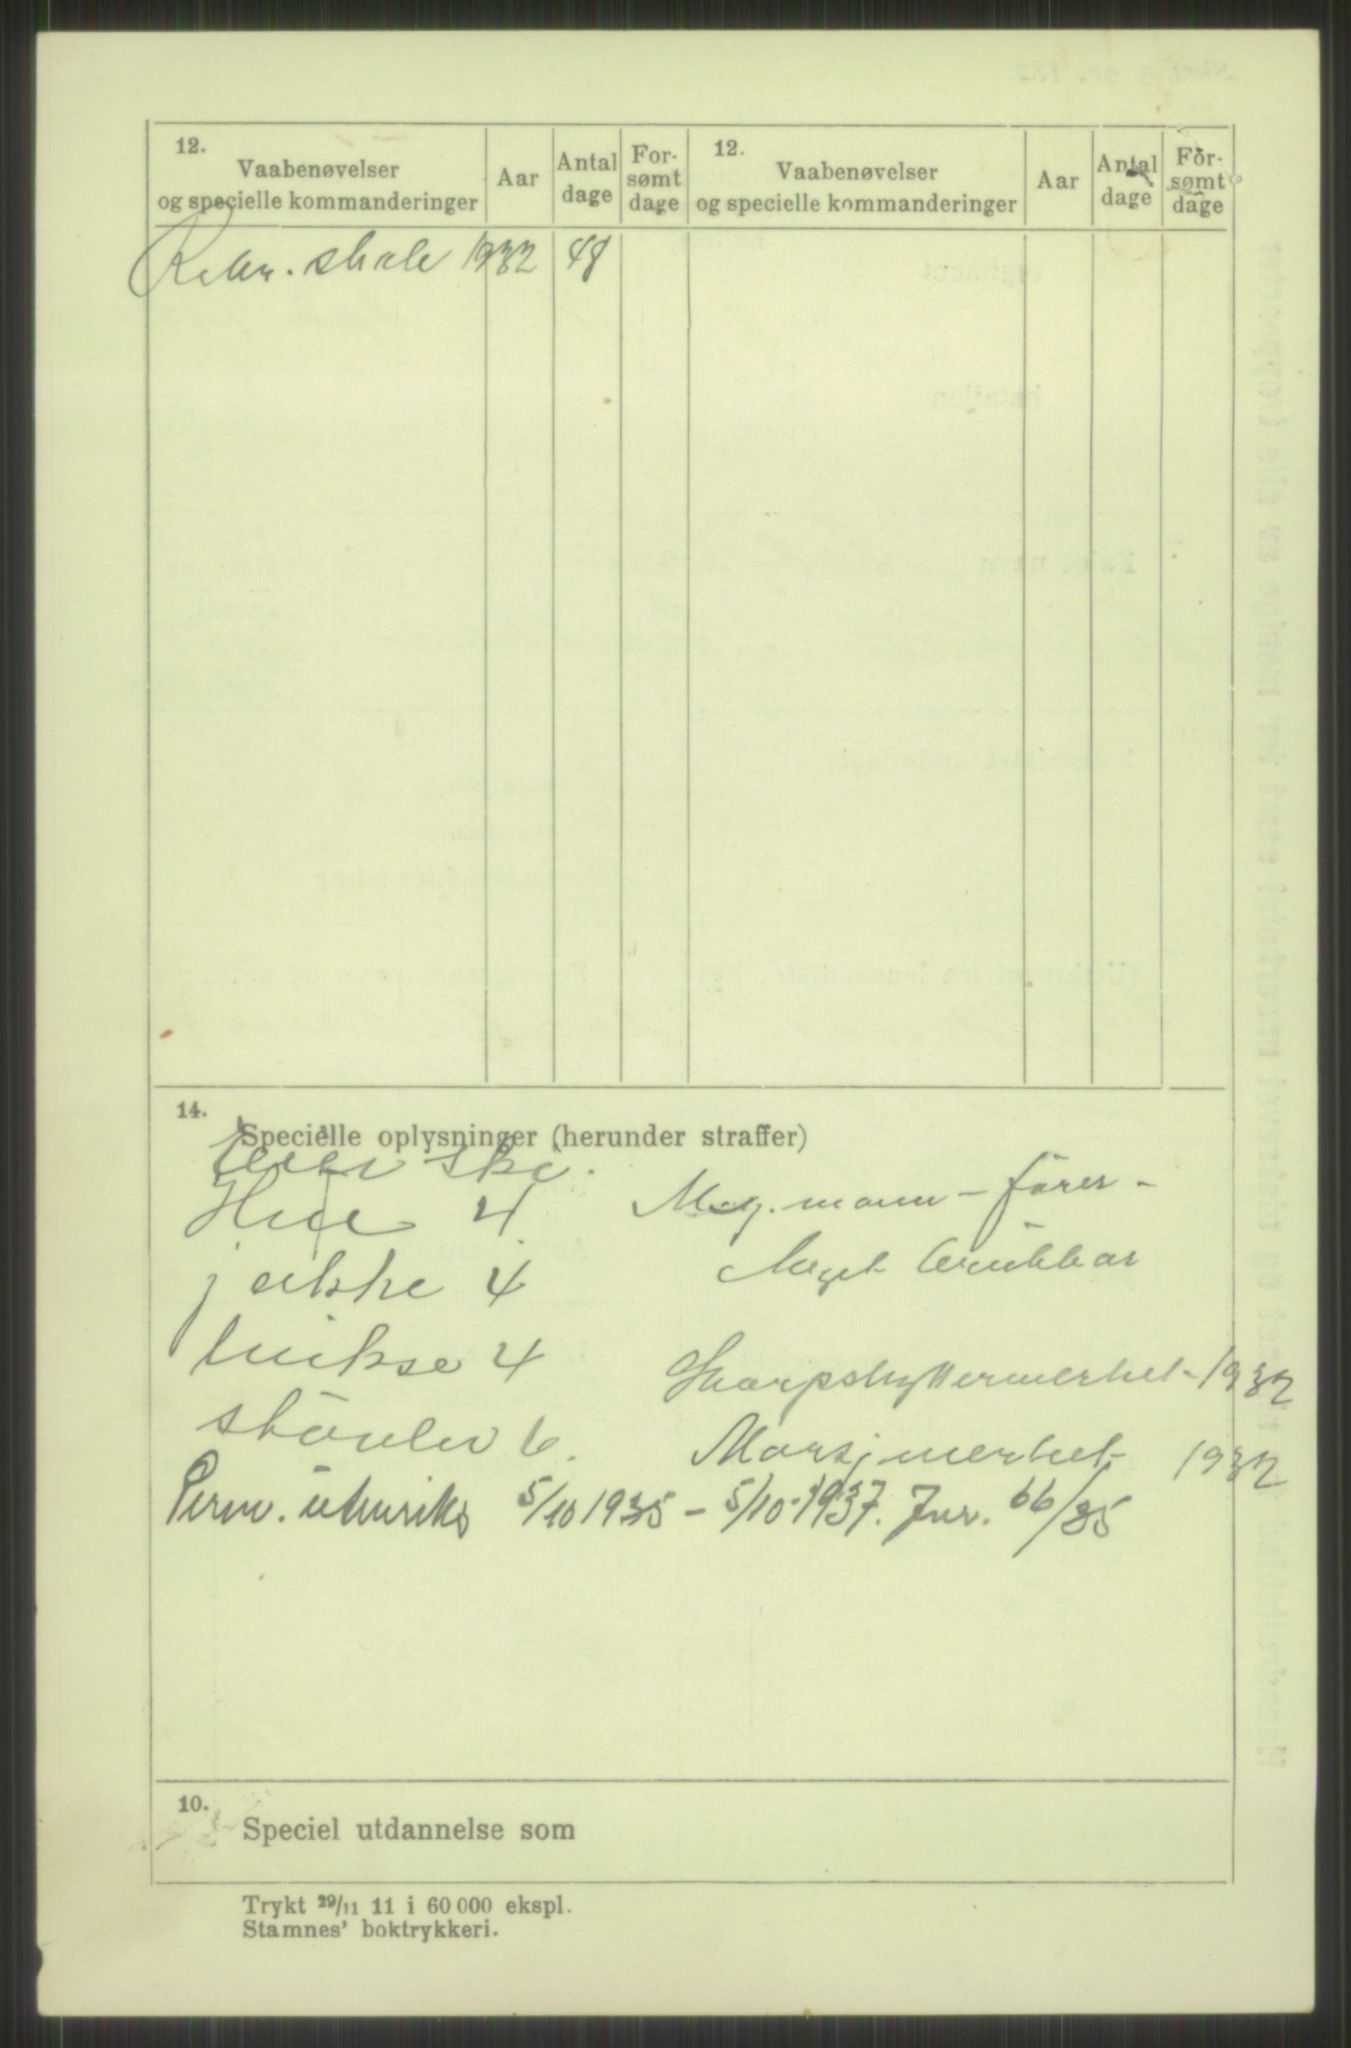 12.
Vaabenøvelser
og specielle kommanderinger
Aar
Antal
dage
For-
sømt
dage
12.
Vaabenøvelser
og specielle kommanderinger
Aar
Antal
dage
For-
sømt
dage
Rekr. skole 1932 48
14.
Specielle oplysninger (herunder straffer)
ski.
Hue 4
Mg. mann - förer -
jakke 4
Meget brukbar
bukse 4
Skarpskyttermerket - 1932
stövler 6.
Marsjmerket 1932
Perm. utenriks 5/10 1935 - 5/10-1937. Jnr. 66/35
10.
Speciel utdannelse som
Trykt 29/11 11 i 60 000 ekspl.
Stamnes' boktrykkeri.